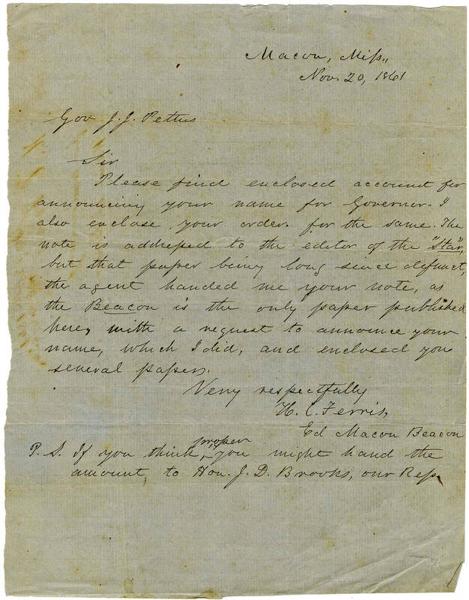 Macon, Miss.,
Nov. 20, 1861
Gov J. J. Pettus
Sir
Please find enclosed account for
announcing your name for Governor. I
also enclose your order for the same. The
note is addressed to the editor of the "Star,"
but that paper being long since defunct,
the agent handed me your note, as
the Beacon is the only paper published
here, with a request to announce your
name, which I did, and enclosed you
several papers.
Very respectfully
H. C. Ferris,
Ed Macon Beacon
P. S. If you think proper, you might hand the
amount, to Hon. J. D. Brooks, our Rep.